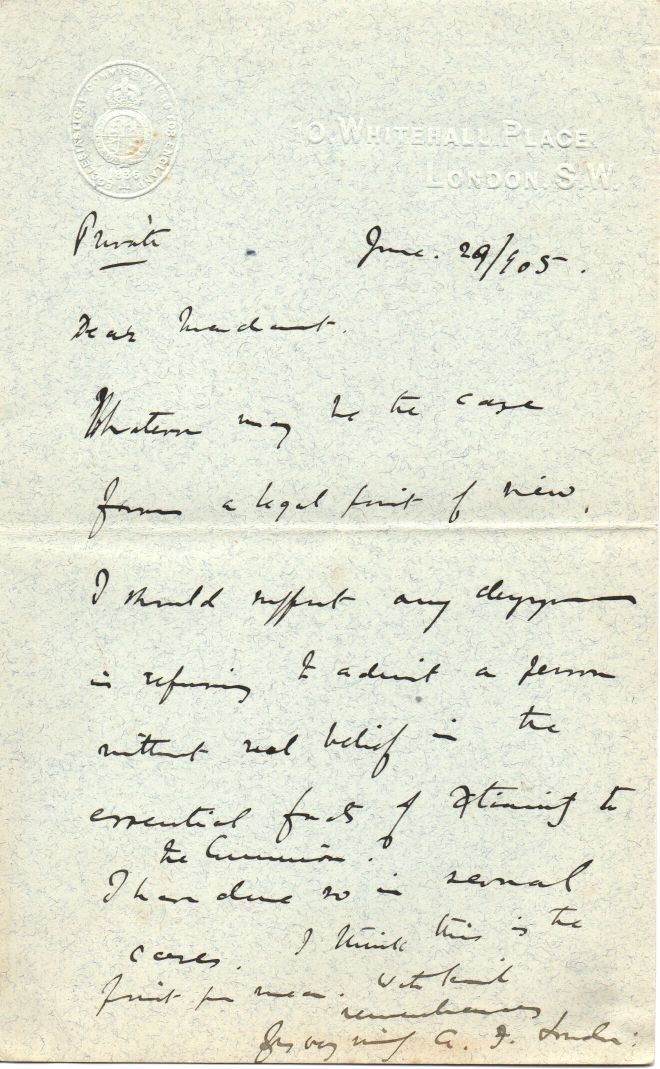 ECCLESIASTICAL COMMISSIONERS FOR ENGLAND
1836
10. WHITEHALL PLACE.
LONDON. S.W.
Private
June. 29/905.
Dear
Whatever may be the case
from a legal point of view,
I should support any clergyman
in refusing to admit a person
without real belief in the
essential facts of Xtianity to
the Communion.
I have done so in several
cases. I think this is the
point you mean. With kind
remembrances
Yrs very A. F. London: